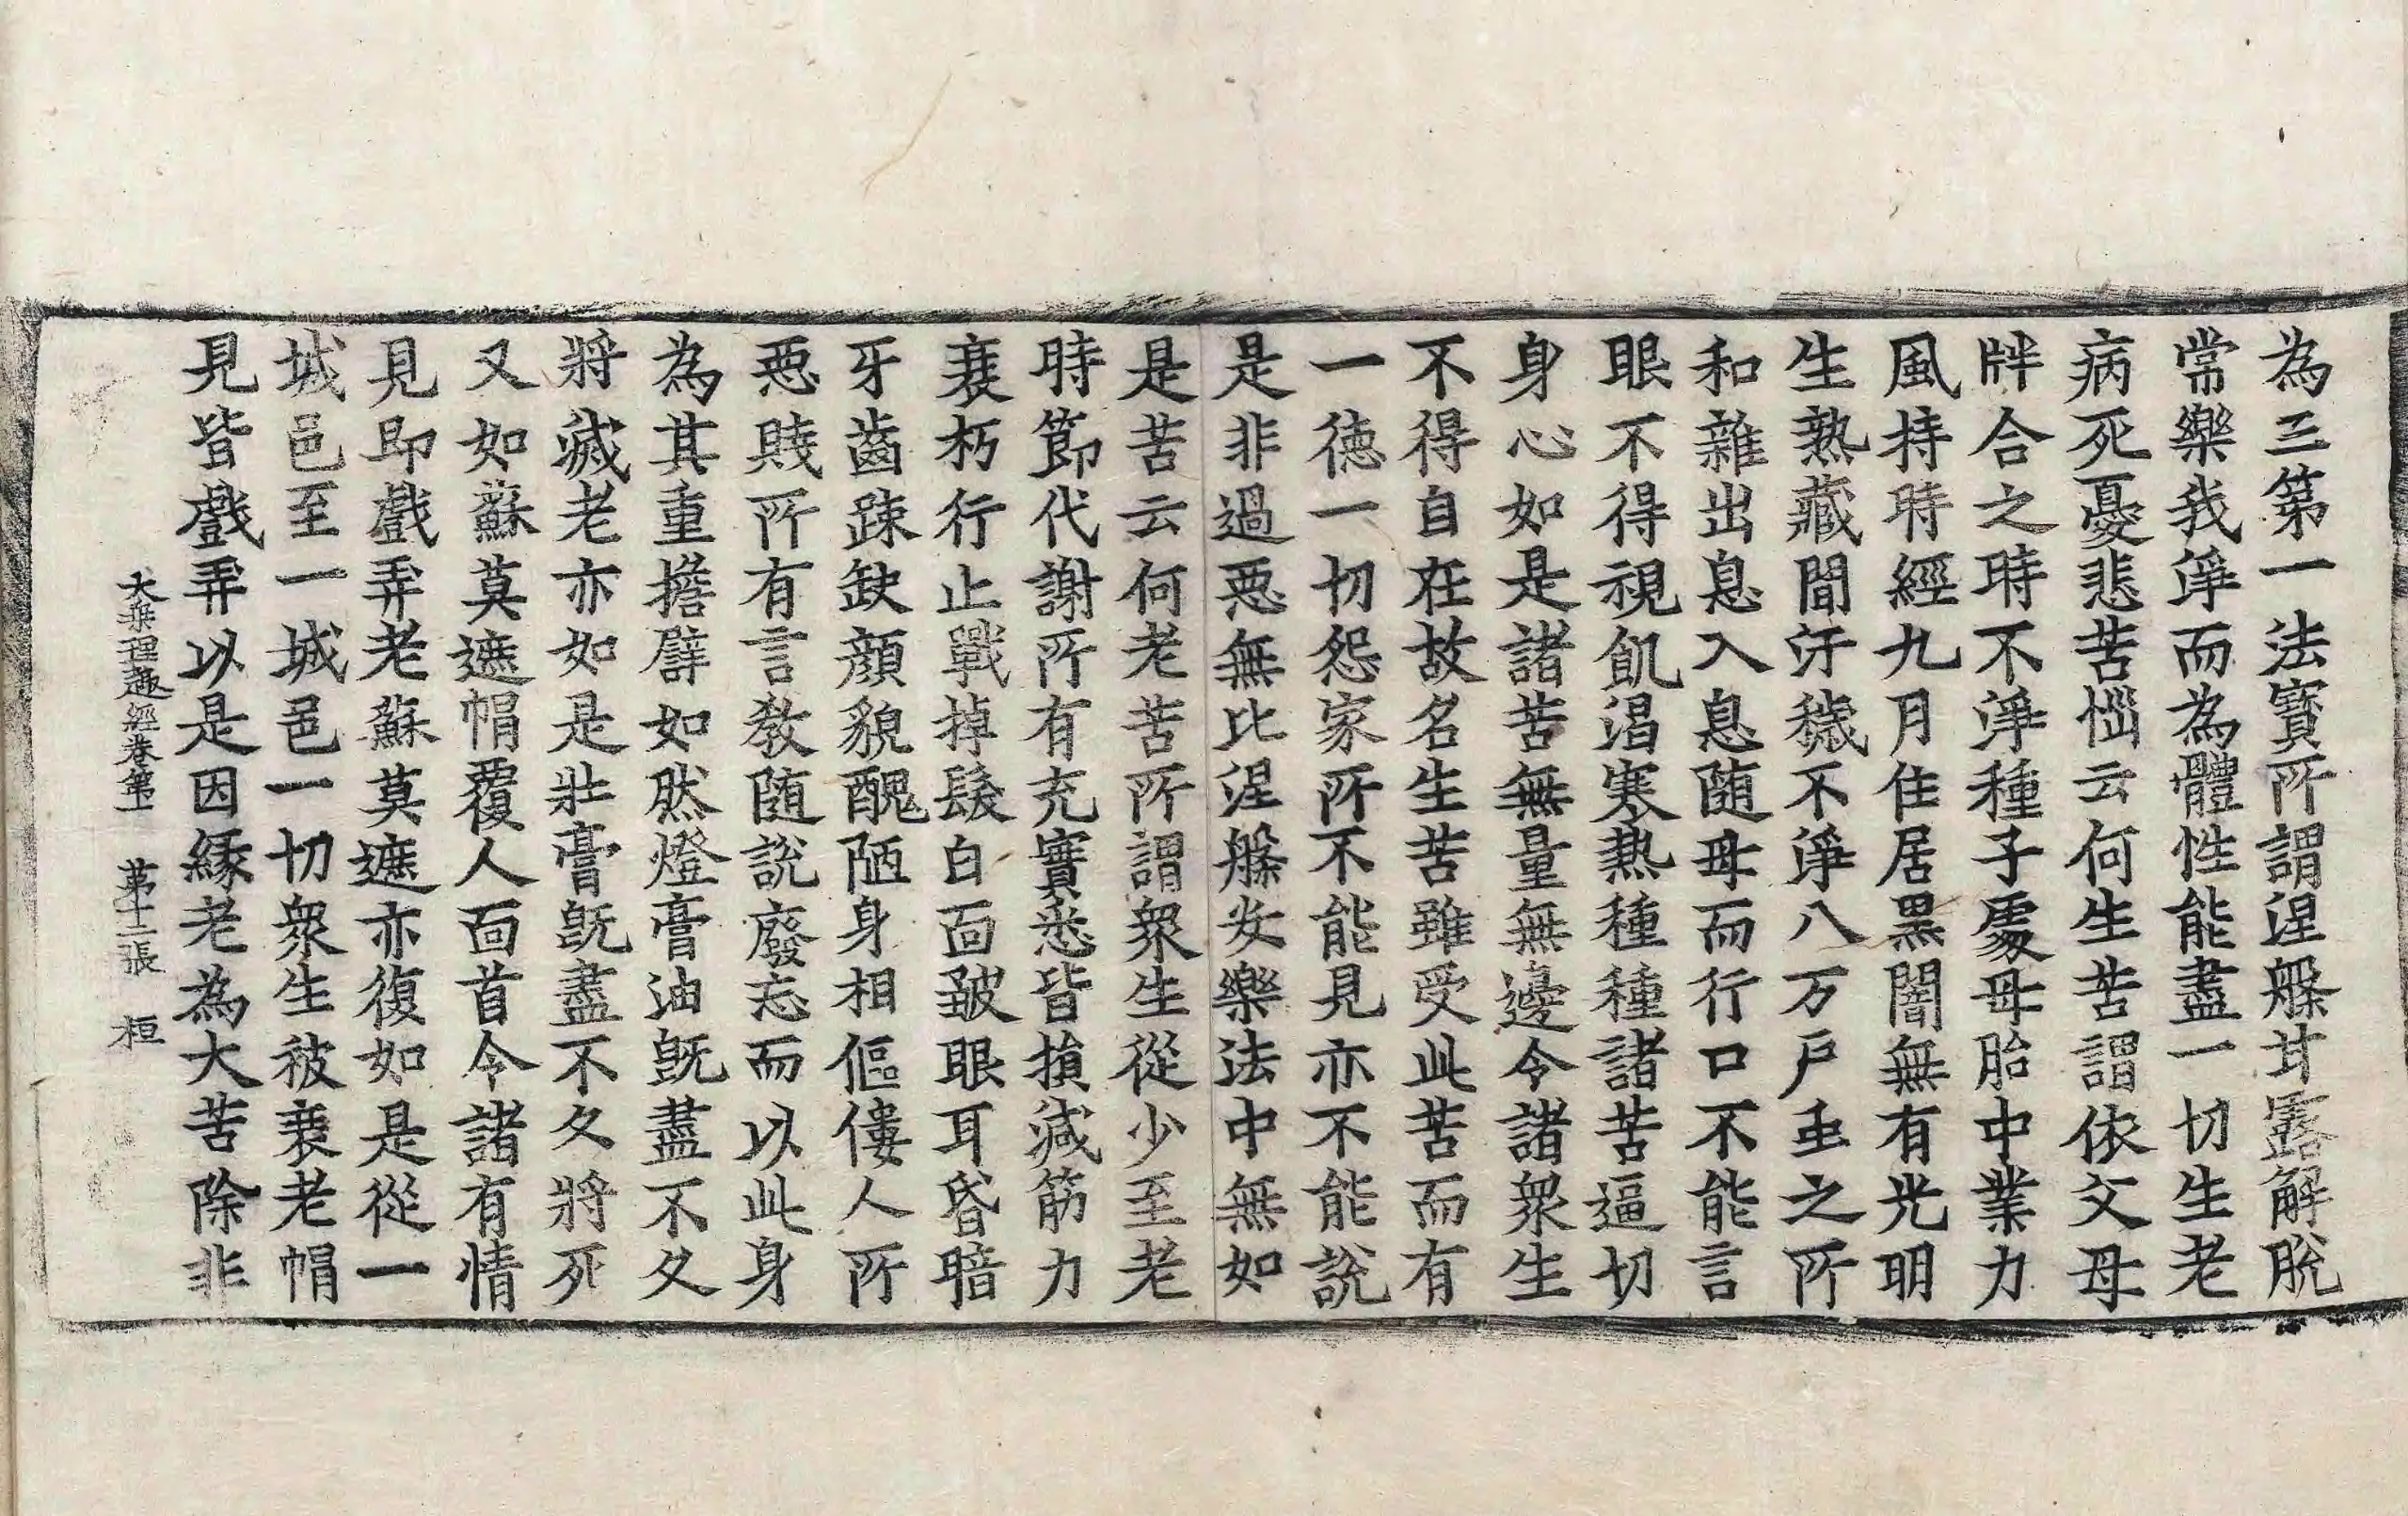 為三第一法寶所謂涅槃甘露解脫
常樂我淨而為體性能盡一切生老
病死憂悲苦惱云何生苦謂依父母
牉合之時不淨種子處母胎中業力
風持時經九月住居黑闇無有光明
生熟藏間汙穢不淨八万戶虫之所
和雜出息入息隨母而行口不能言
眼不得視飢渴寒熱種種諸苦逼切
身心如是諸苦無量無邊令諸眾生
不得自在故名生苦雖受此苦而有
一德一切怨家所不能見亦不能說
是非過惡無比涅槃安樂法中無如
是苦云何老苦所謂眾生從少至老
時節代謝所有充實悉皆損減筋力
衰朽行止戰掉髮白面皺眼耳昏暗
牙齒踈缺顏貌醜陋身相傴僂人所
惡賤所有言教隨說廢忘而以此身
為其重擔譬如然燈膏油既盡不久
將滅老亦如是壯膏既盡不久將死
又如蘇莫遮帽覆人面首令諸有情
見即戲弄老蘇莫遮亦復如是從一
城邑至一城邑一切眾生被衰老帽
見皆戲弄以是因緣老為大苦除非
大乘理趣經卷第一 第十二張 桓